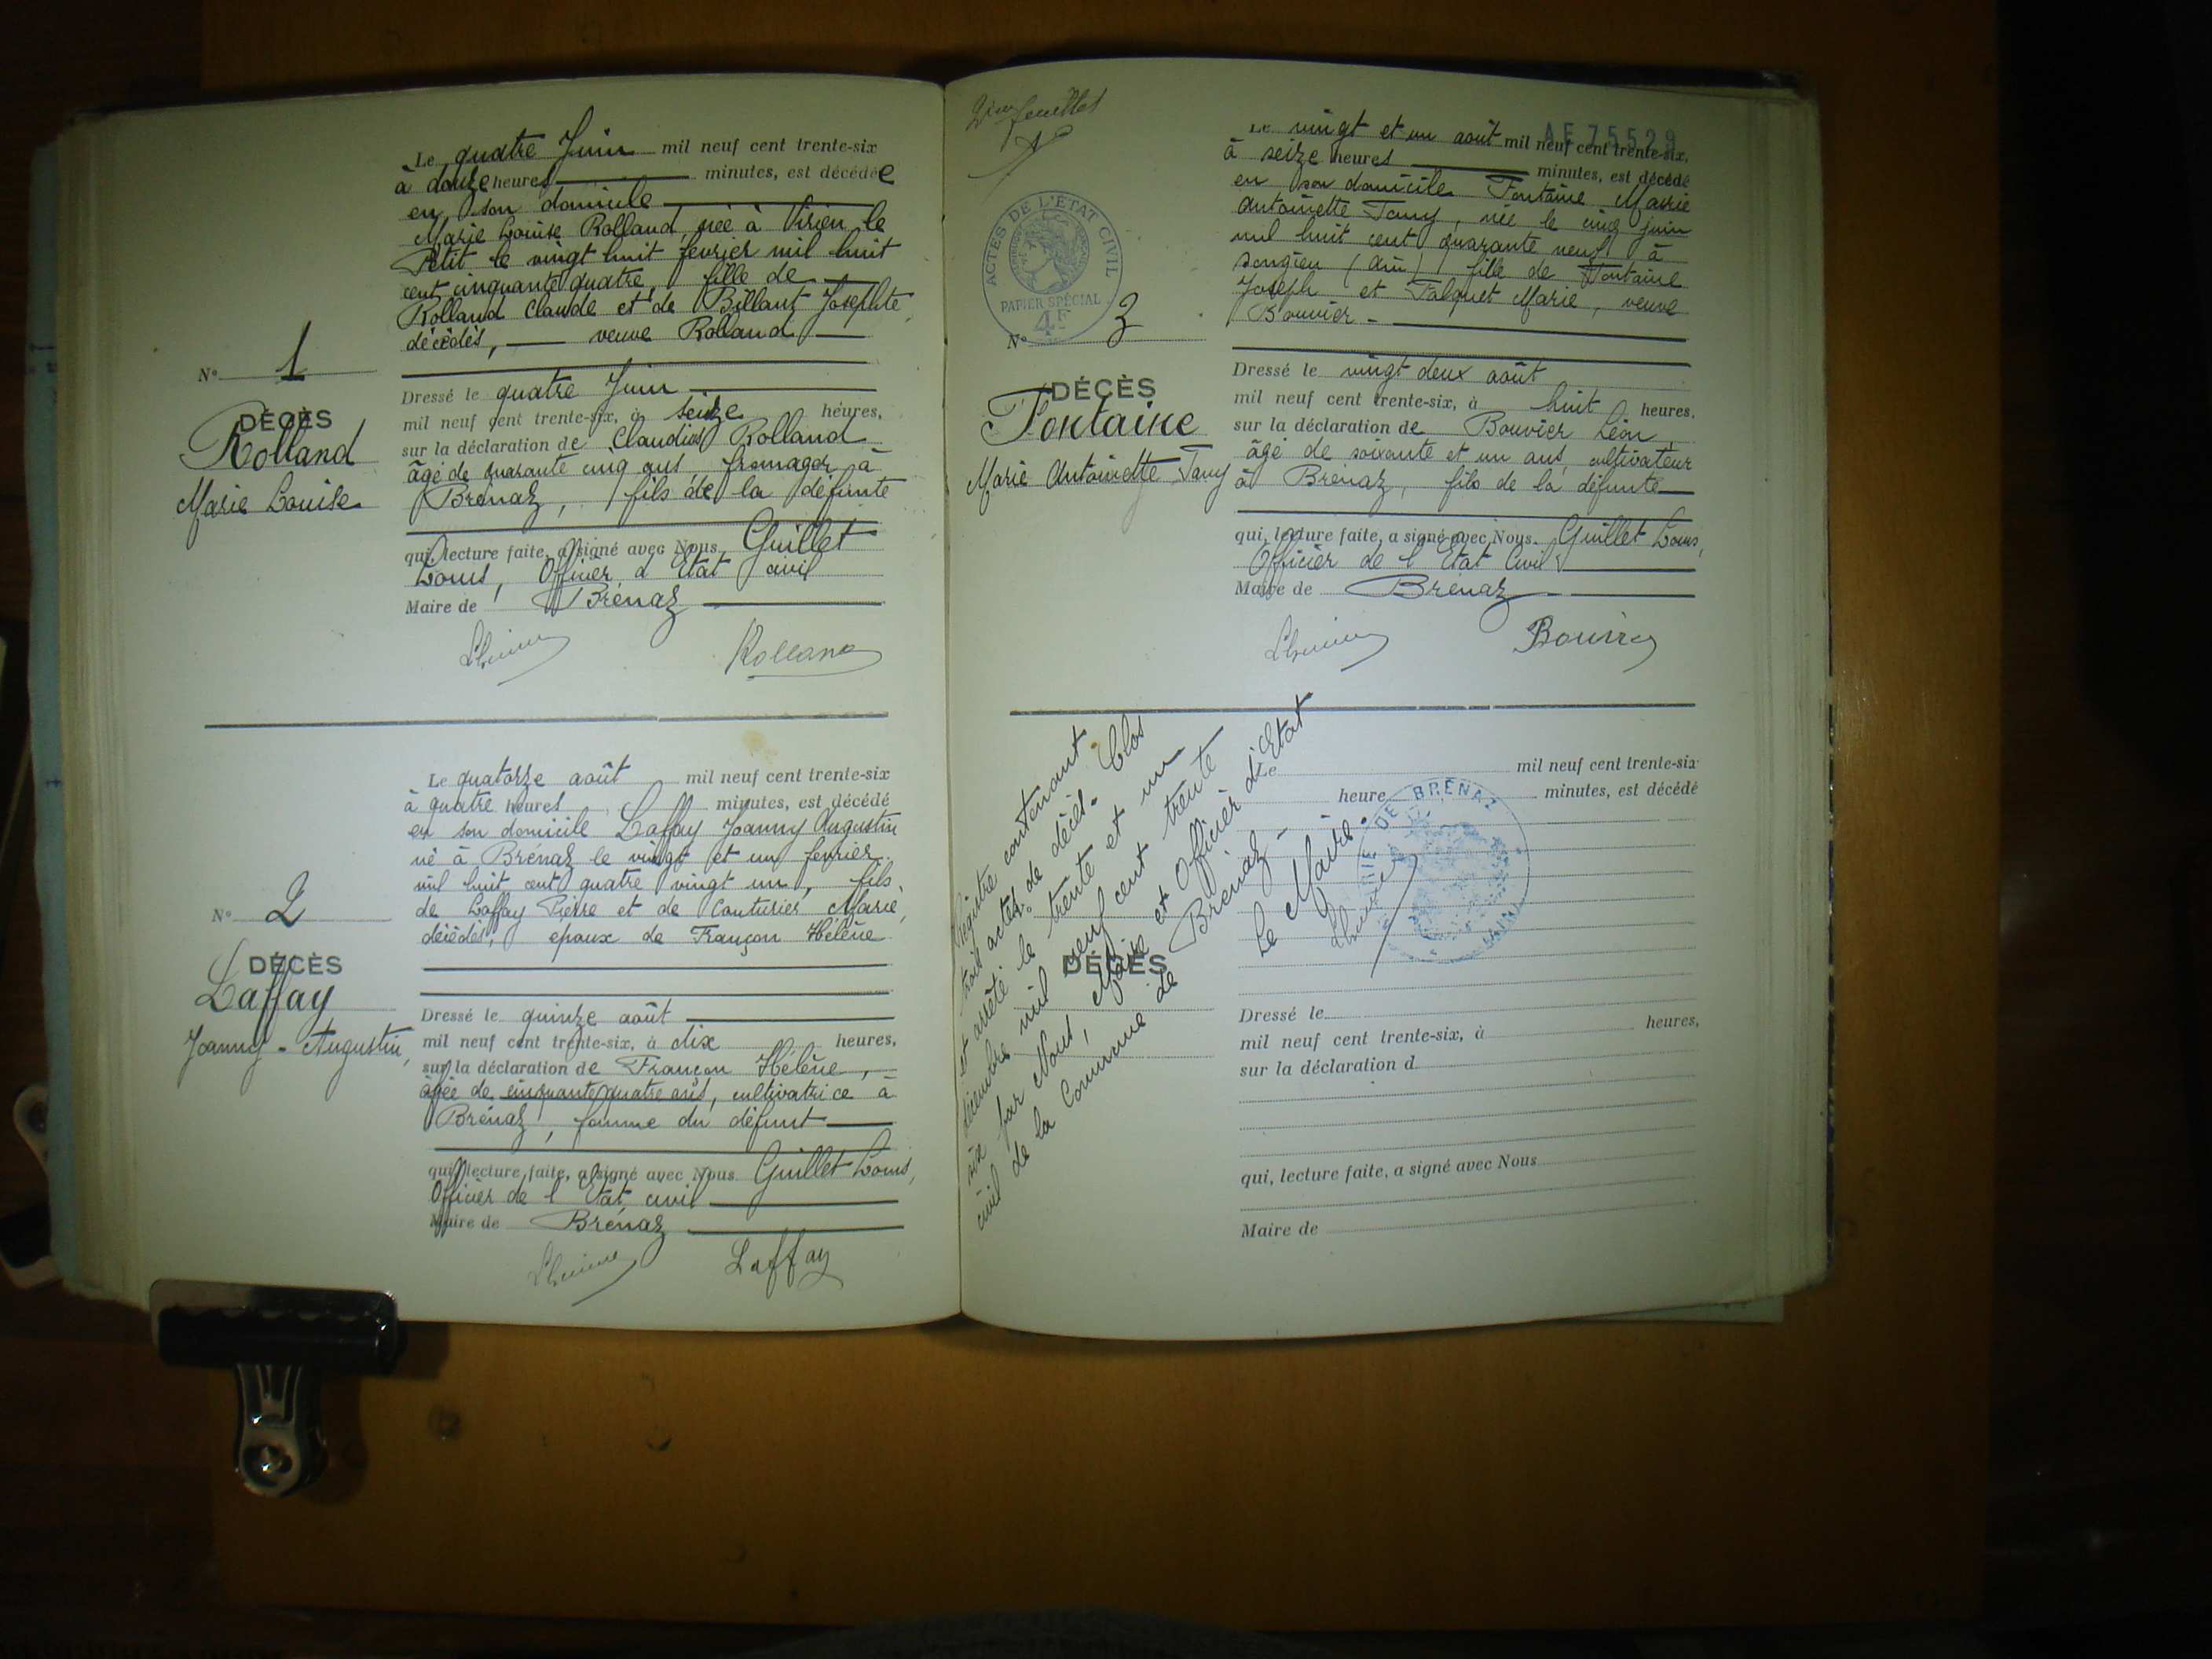 N° 1
DÉCÈS
Rolland
Marie Louise
Le quatre Juin mil neuf cent trente-six
à douze heures minutes, est décédée
en son domicile
Marie Louise Rolland, née à Virieu le
Petit le vingt huit février mil huit
cent cinquante quatre, fille de
Rolland Claude et de Billant Josephte,
décédés, veuve Rolland
Dressé le quatre Juin
mil neuf cent trente-six, à seize heures,
sur la déclaration de Claudius Rolland
âgé de quarante cinq ans, fromager à
Brénaz, fils de la défunte
qui, lecture faite, a signé avec Nous Guillet
Louis, Officier d'Etat civil
Maire de Brénaz
Rolland
N° 2
DÉCÈS
Laffay
Joanny - Augustin,
Le quatorze août mil neuf cent trente-six
à quatre heures minutes, est décédé
en son domicile Laffay Joanny Augustin
né à Brénaz le vingt et un février
mil huit cent quatre vingt un, fils
de Laffay Pierre et de Couturier Marie,
décédés, époux de Françon Hélène
Dressé le quinze août
mil neuf cent trente-six, à dix heures,
sur la déclaration de Françon Hélène,
âgée de cinquante quatre ans, cultivatrice à
Brénaz, femme du défunt
qui, lecture faite, a signé avec Nous Guillet Louis,
Officier de l'Etat civil
Maire de Brénaz
Laffay
feuillet
ACTES DE L'ETAT CIVIL
PAPIER SPÉCIAL
4F
N° 3
DÉCÈS
Fontaine
Marie Antoinette Jany
AF 75529
Le vingt et un août mil neuf cent trente-six,
à seize heures minutes, est décédé
en son domicile Fontaine Marie
Antoinette Jany, née le cinq juin
mil huit cent quarante neuf à
Songieu (Ain) fille de Fontaine
Joseph et Falquet Marie, veuve
Bouvier -
Dressé le vingt deux août
mil neuf cent trente-six, à huit heures,
sur la déclaration de Bouvier Léon,
âgé de soixante et un ans, cultivateur
à Brénaz, fils de la défunte
qui, lecture faite, a signé avec Nous Guillet Louis,
Officier de l'Etat Civil
Maire de Brénaz
Bouvier
Registre contenant
trois actes de décès. Clos
et arrêté le trente et un
décembre mil neuf cent trente
six par Nous, Maire et Officier d'Etat
civil de la Commune de Brénaz -
Le Maire.
DE BRÉNAZ
DÉCÈS
Le mil neuf cent trente-six
heure minutes, est décédé
Dressé le
mil neuf cent trente-six, à heures,
sur la déclaration d
qui, lecture faite, a signé avec Nous
Maire de